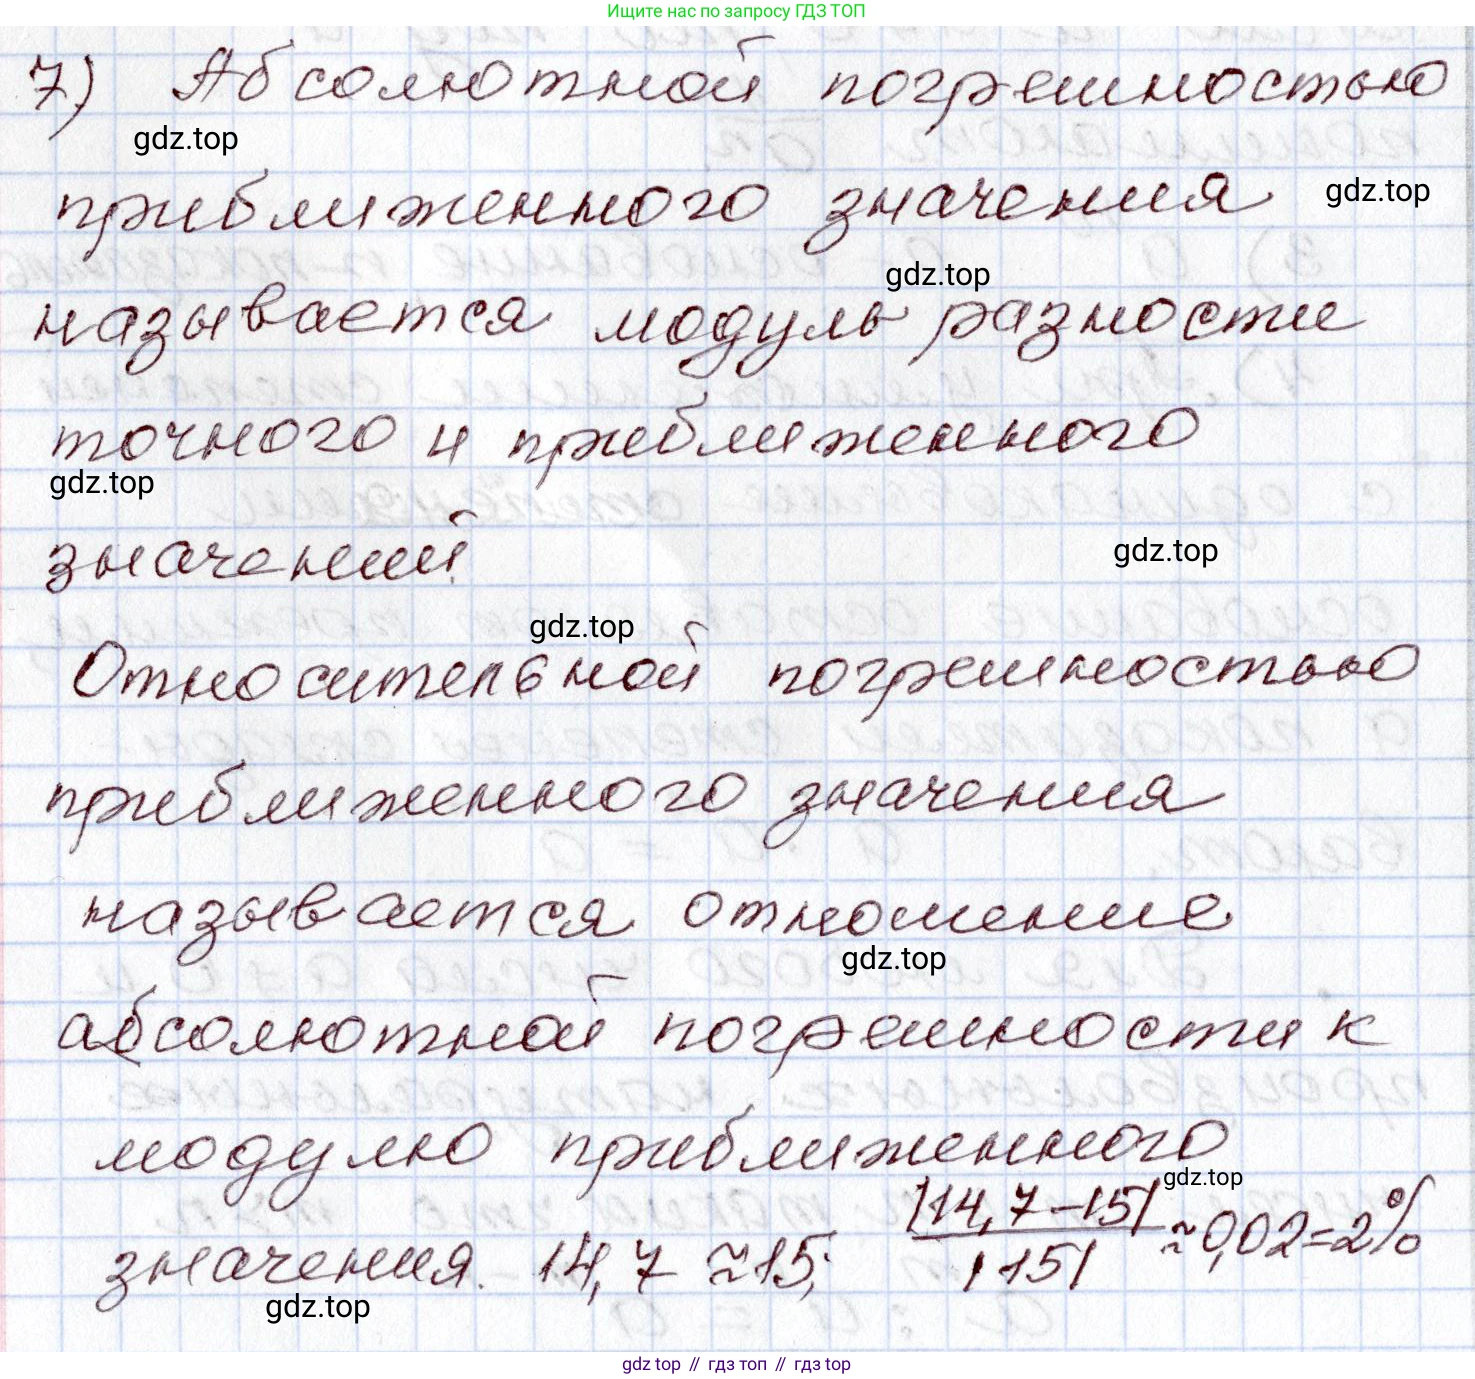 Ищите нас по запросу ГДЗ ТОП
7) Абсолютной погрешностью
gdz.top
приближенного значения gdz.top
gdz.top
называется модуль разности
точного и приближенного
gdz.top
значений.
gdz.top
gdz.top
Относительной погрешностью
приближенного значения
называется отношение
gdz.top
абсолютной погрешности к
модулю приближенного
gdz.top
значения. 14,7 ≈ 15; |14,7 – 15| / |15| ≈ 0,02 = 2%
gdz.top
gdz top // гдз топ // гдз top